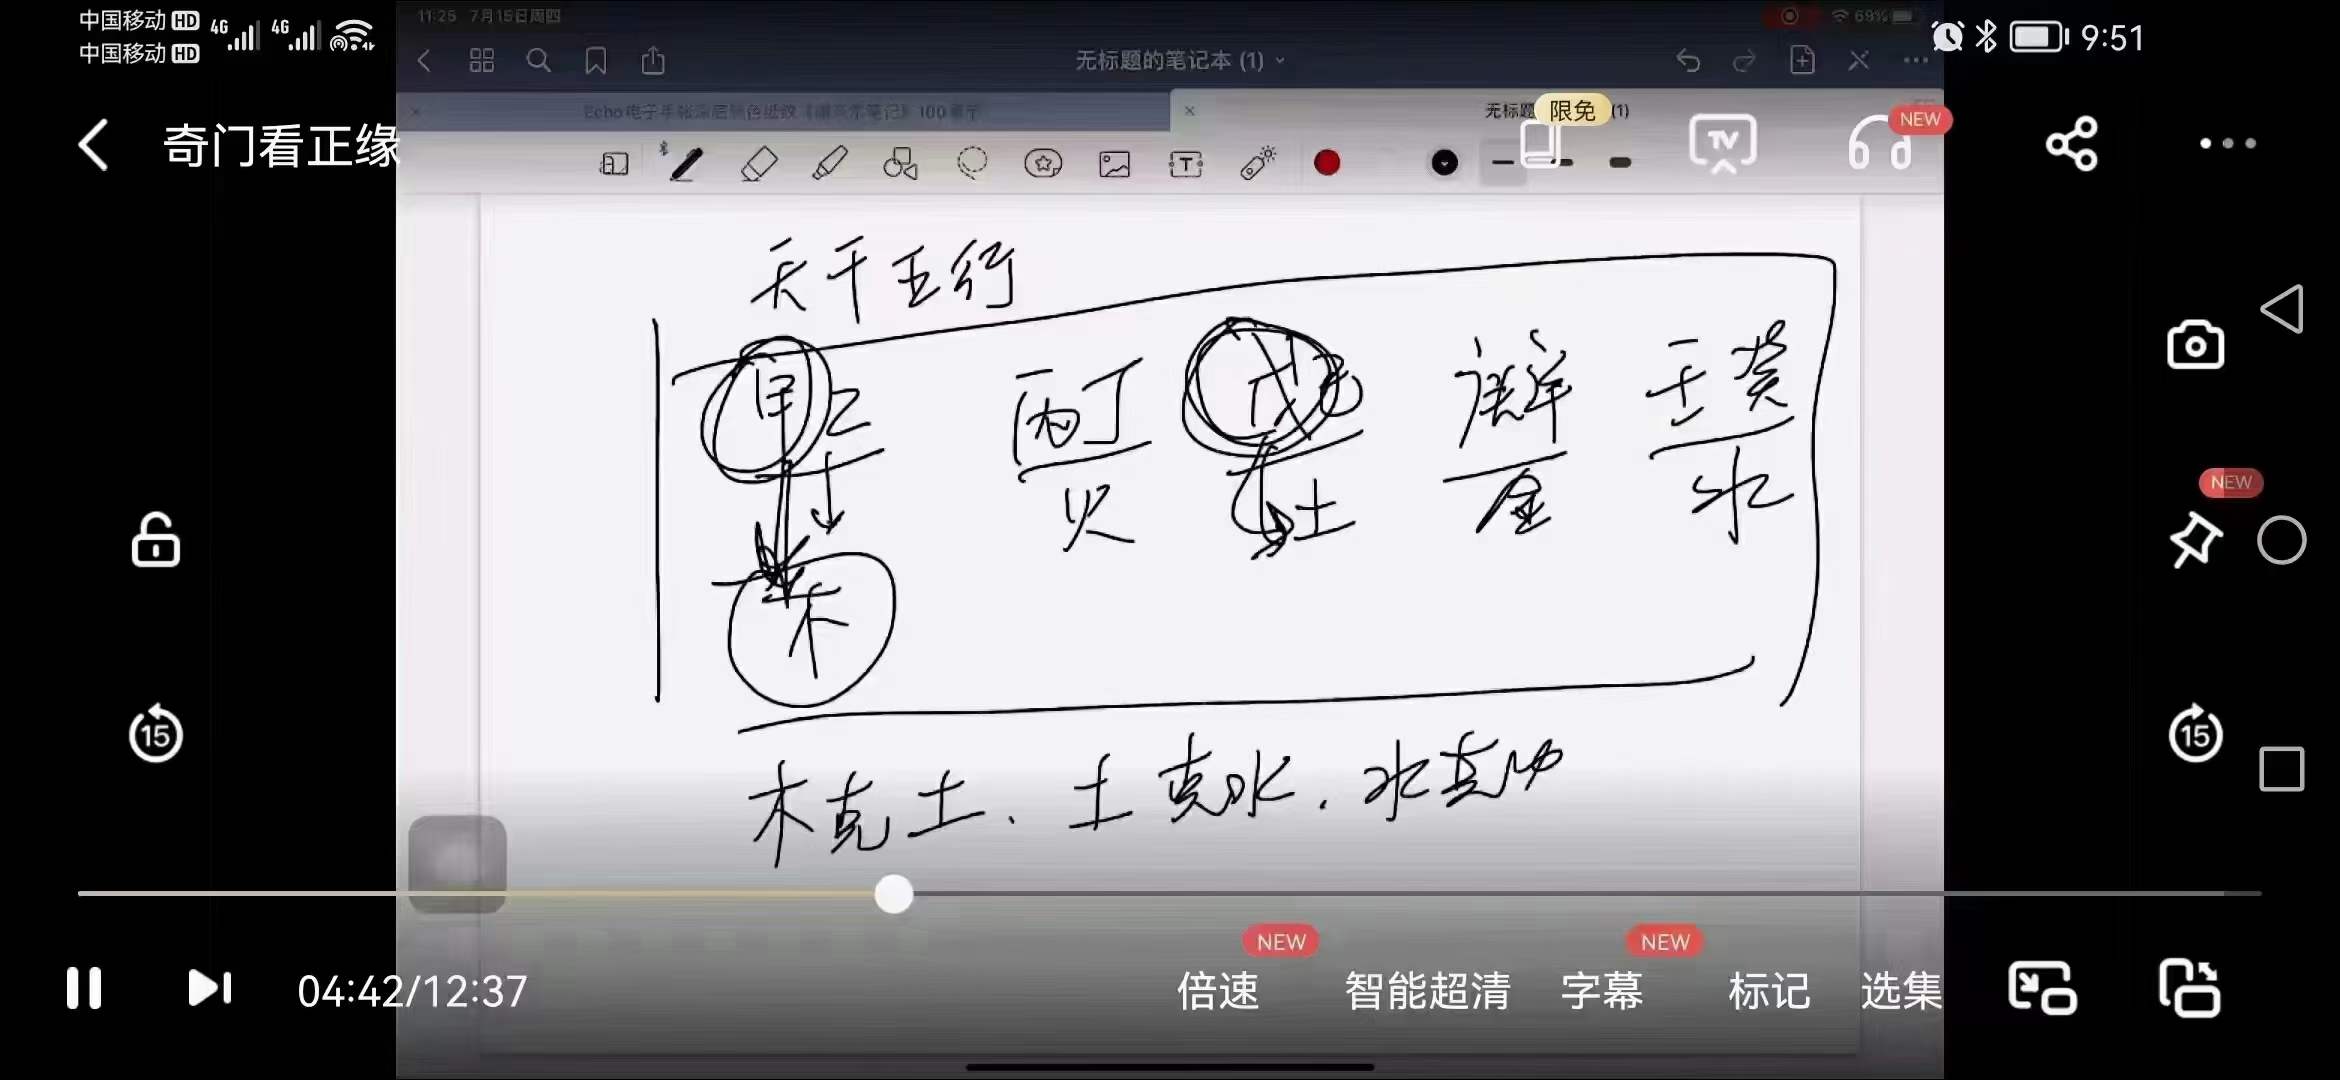 中国移动 HD 4G 4G
中国移动 HD
9:51
11:25 7月15日周四
69%
无标题的笔记本 (1)
奇门看正缘
无标题 (1)
限免
TV
NEW
天干五行
甲乙 丙丁 戊己 庚辛 壬癸
木 火 土 金 水
木克土、土克水、水克
NEW
15
15
04:42/12:37
NEW
NEW
倍速 智能超清 字幕 标记 选集